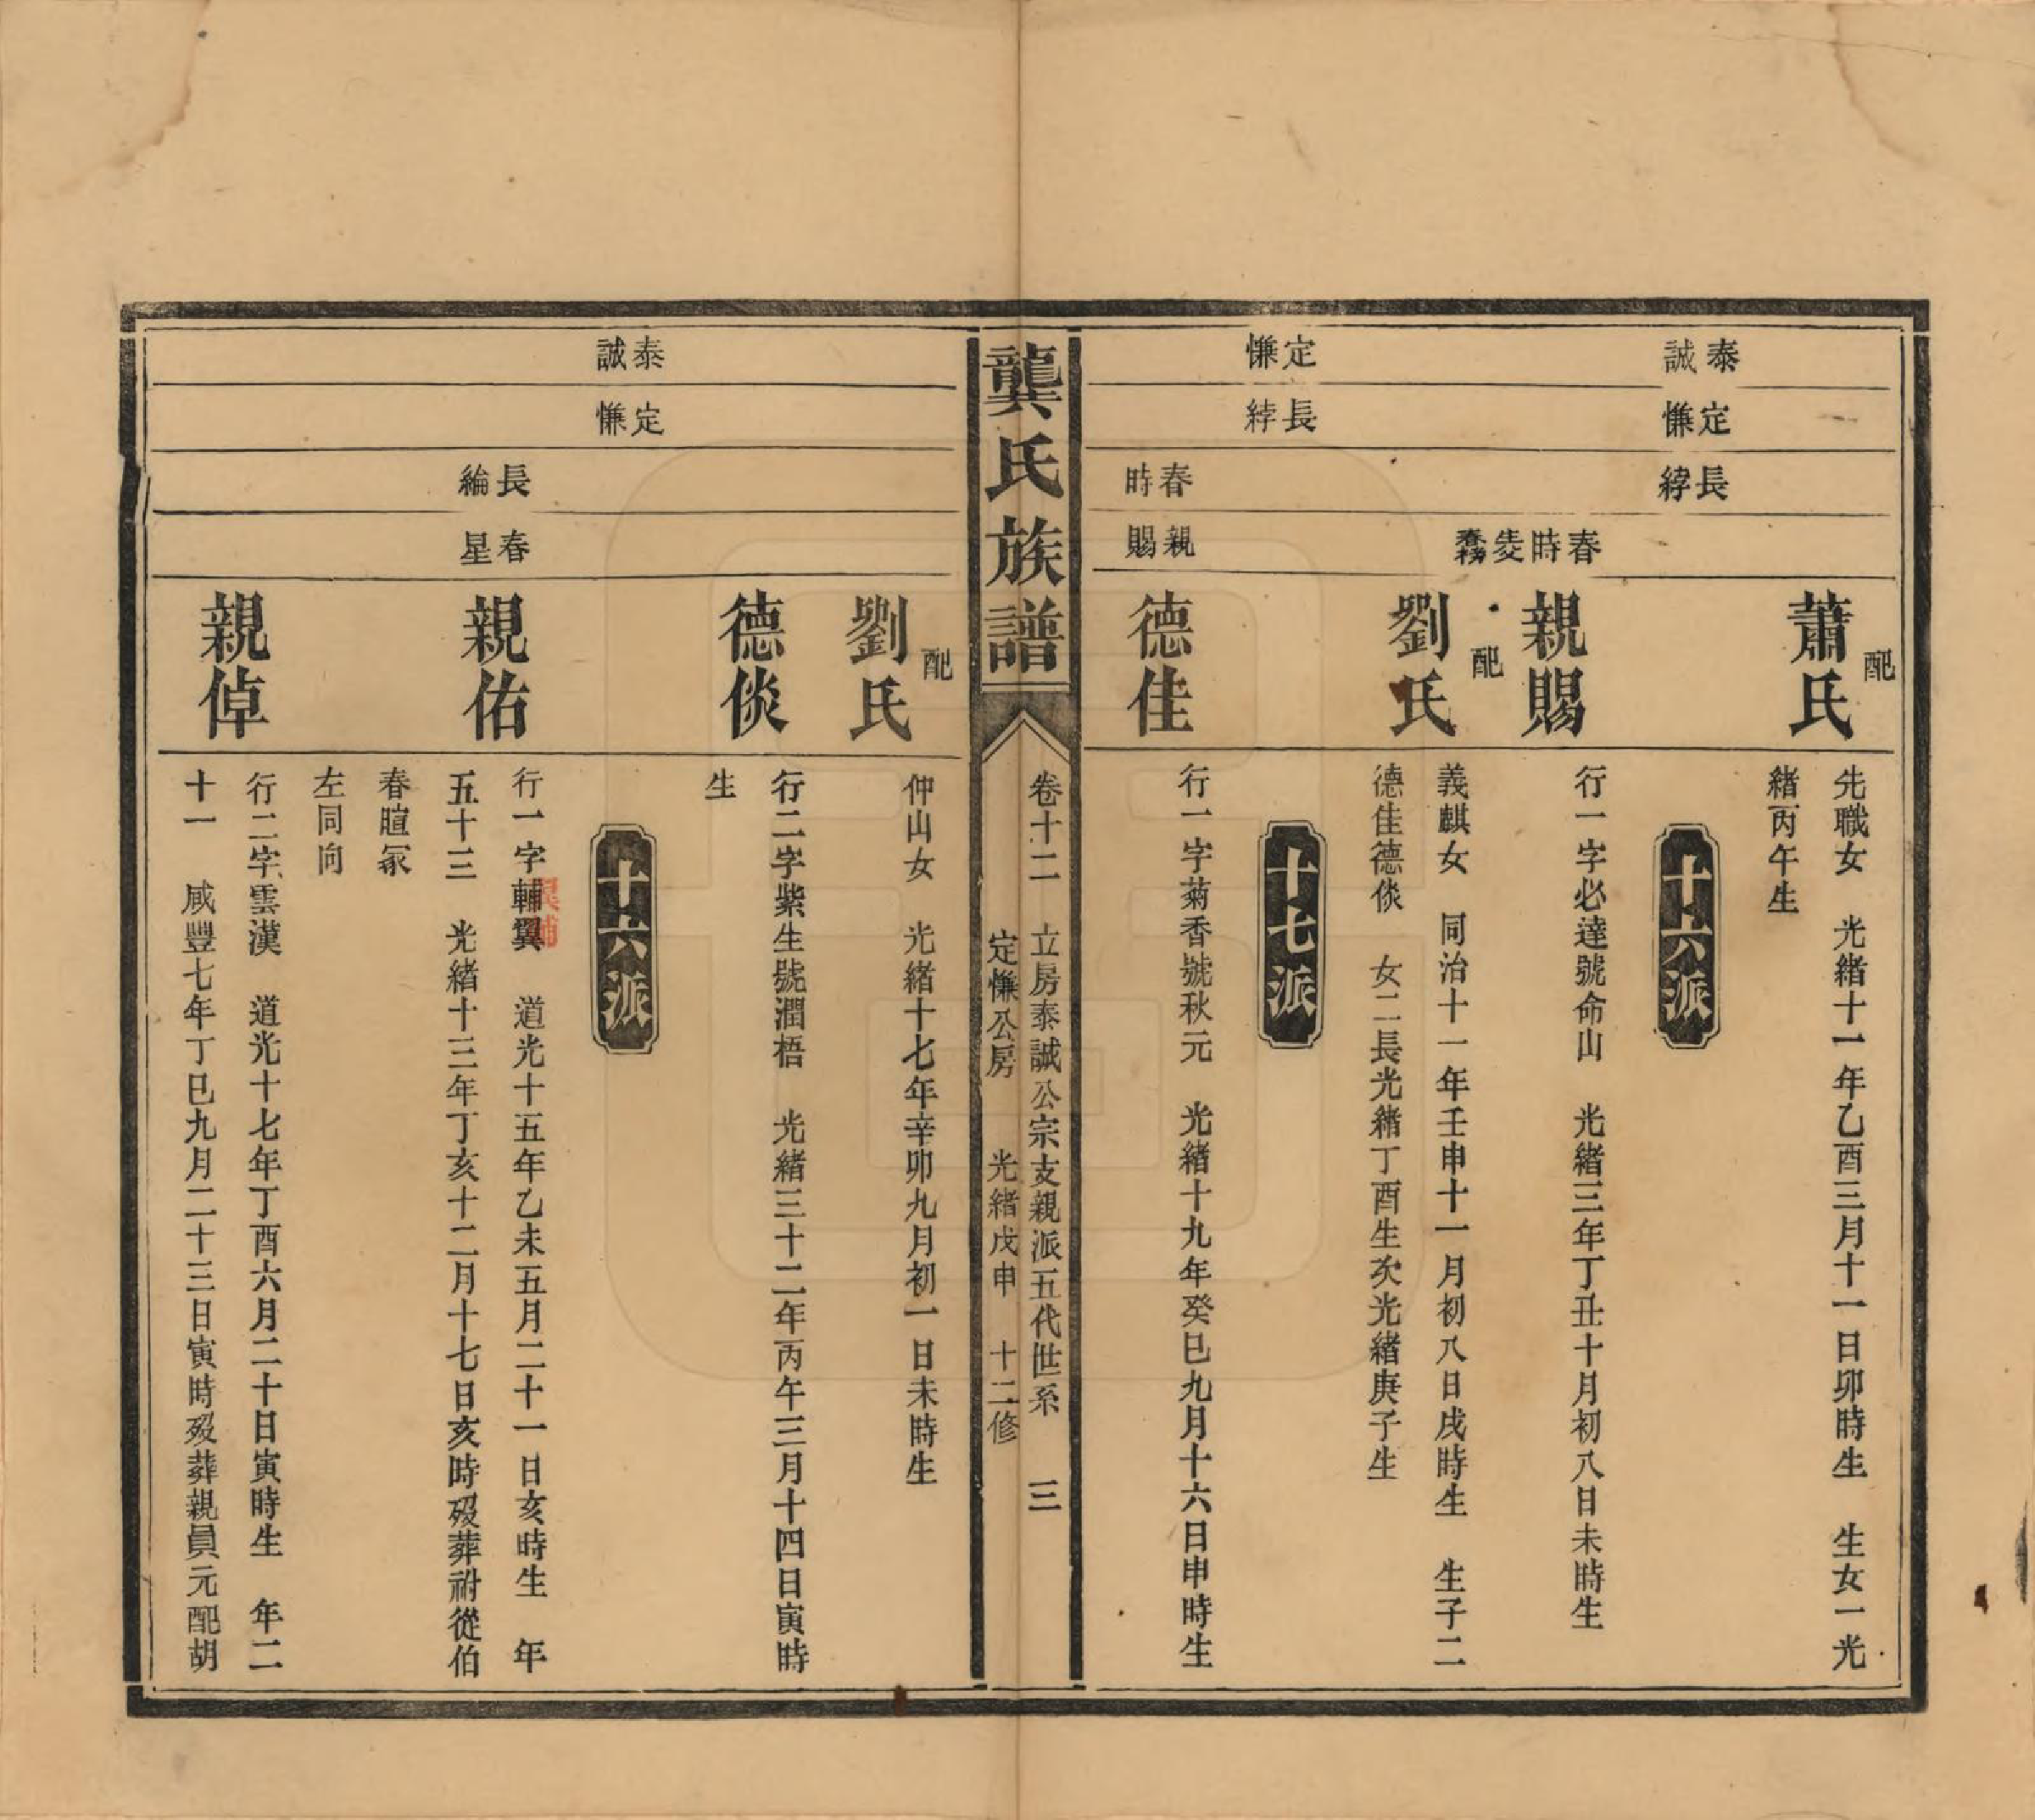 配
蕭氏
先職女　光緒十一年乙酉三月十一日卯時生　生女一光
緒丙午生
泰誠
定慊
長綍
十六派
春時
親賜
行一字必達號命山　光緒三年丁丑十月初八日未時生
配
劉氏
義麒女　同治十一年壬申十一月初八日戌時生　生子二
德佳德倓　女二長光緒丁酉生次光緒庚子生
定慊
長綍
春時
親賜
十七派
德佳
行一字菊香號秋元　光緒十九年癸巳九月十六日申時生
龔氏族譜
卷十二　立房泰誠公宗支親派五代世系　三
定慊公房　光緒戊申　十二修
配
劉氏
仲山女　光緒十七年辛卯九月初一日未時生
德倓
行二字紫生號潤梧　光緒三十二年丙午三月十四日寅時
生
泰誠
定慊
長綸
春星
十六派
親佑
行一字輔翼　道光十五年乙未五月二十一日亥時生　年
五十三　光緒十三年丁亥十二月十七日亥時歿葬祔從伯
春暄冢
左同向
親倬
行二字雲漢　道光十七年丁酉六月二十日寅時生　年二
十一　咸豐七年丁巳九月二十三日寅時歿葬親員元配胡